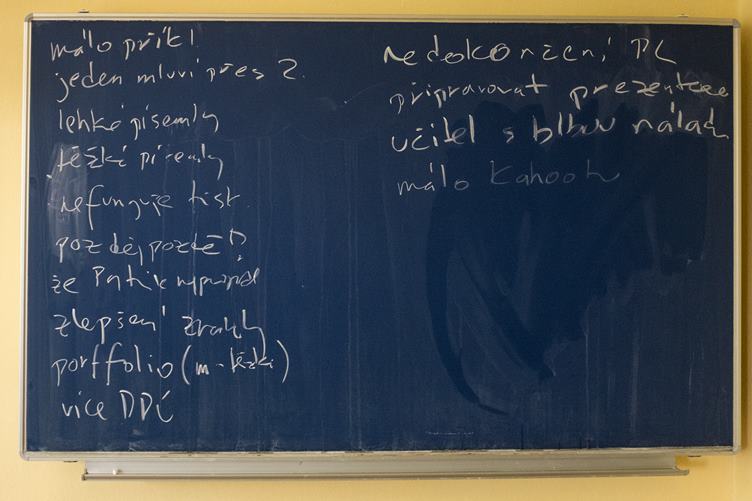 málo příkl
jeden mluví přes 2
lehké písemky
těžké písemky
nefunguje tisk
později pozdě
že Patrik
zlepšení
portfolio (m-těžké)
více DDÚ
nedokončení PC
připravovat prezentace
učitel s blbou nálad
málo Kahoot